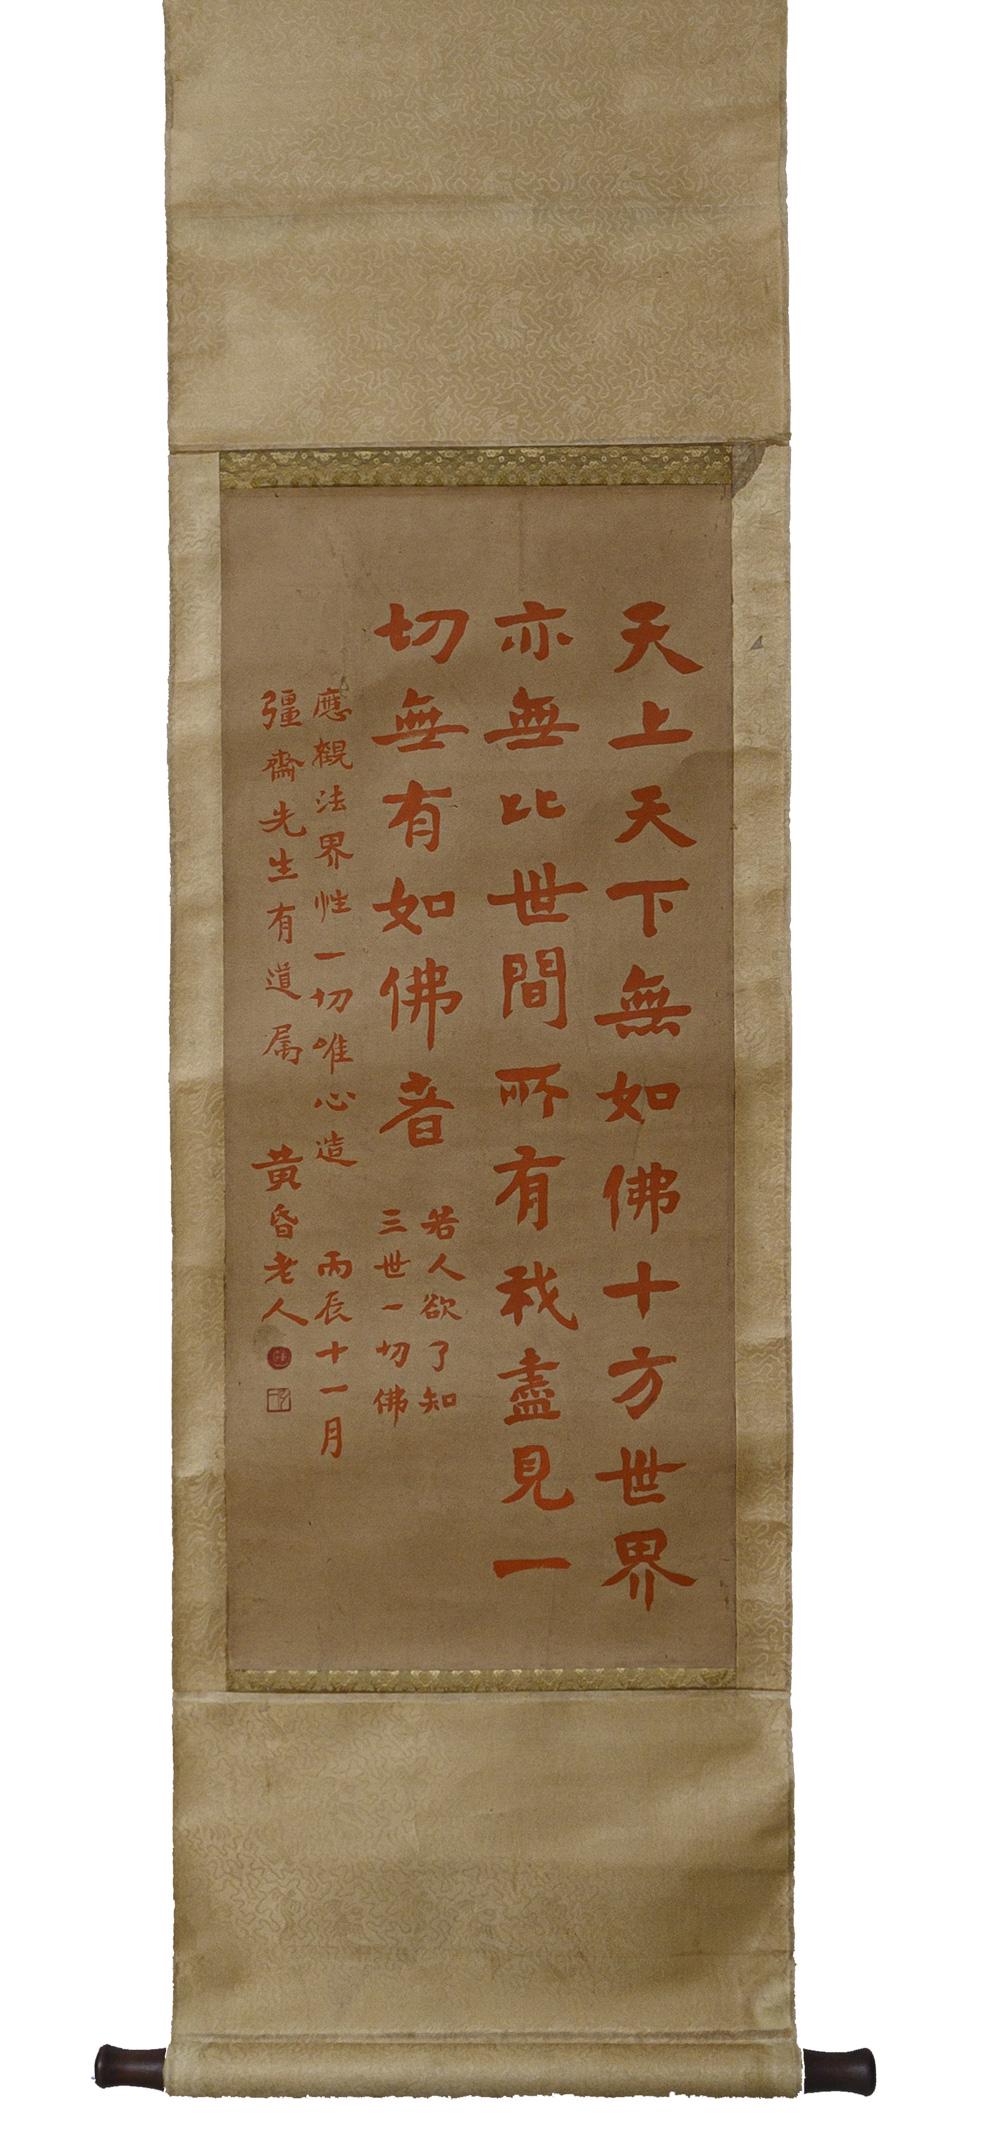 天上天下無如佛十方世界
亦無比世間所有我盡見一
切無有如佛者
若人欲了知
三世一切佛
應觀法界性一切唯心造
丙辰十一月
彊齋先生有道属
黄昏老人